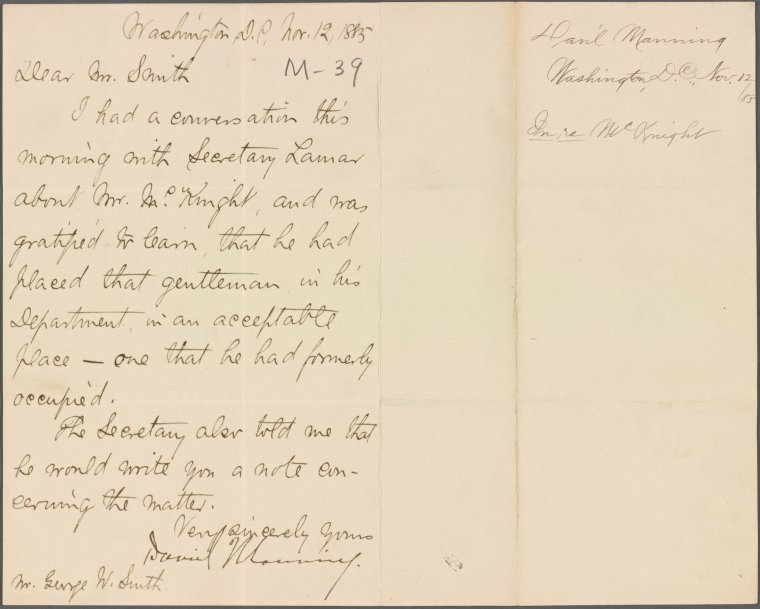 Washington, D.C, Nov. 12, 1885
Dear Mr. Smith
M-39
I had a conversation this
morning with Secretary Lamar
about Mr. McKnight, and was
gratified to learn, that he had
placed that gentleman, in his
Department, in an acceptable
place — one that he had formerly
occupied.
The Secretary also told me that
he would write you a note con-
cerning the matter.
Very sincerely yours
Daniel Manning.
Mr. George W. Smith.
Dan'l Manning
Washington, D.C., Nov. 12/85
In re McKnight